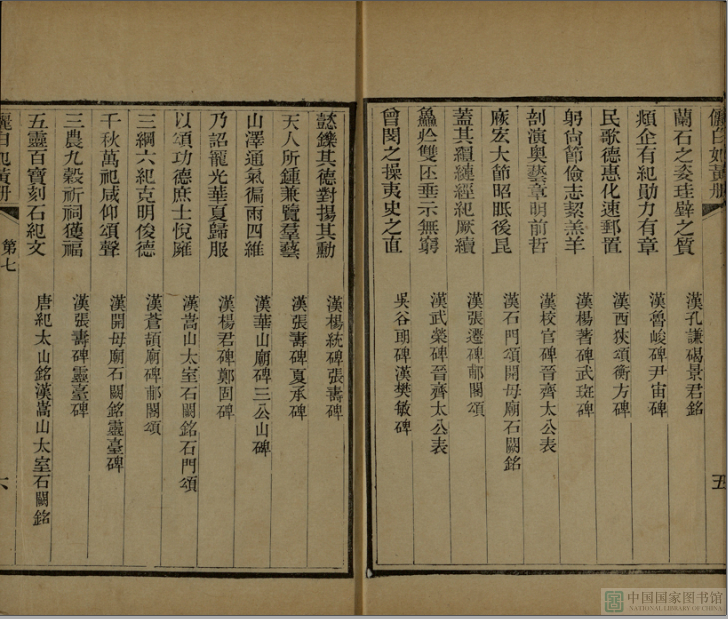 儷白妃黃冊
五
蘭石之姿珪璧之質 漢孔謙碣景君銘
頫企有紀勛力有章 漢魯峻碑尹宙碑
民歌德惠化速郵置 漢西狹頌衡方碑
躬尚節儉志絜羔羊 漢楊著碑武斑碑
剖演奧藝章明前哲 漢校官碑晉齊太公表
宏大節昭眡後昆 漢石門頌開母廟石闕銘
蓋其繵縺經紀厥續 漢張遷碑郙閣頌
雙匹垂示無窮 漢武榮碑晉齊太公表
曾閔之操夷史之直 吳谷朗碑漢樊敏碑
懿鑠其德對揚其勳 漢楊統碑張壽碑
天人所鍾兼覽羣藝 漢張壽碑夏承碑
山澤通氣徧雨四維 漢華山廟碑三公山碑
乃詔寵光華夏歸服 漢楊君碑鄭固碑
以頌功德庶士悅雍 漢嵩山太室石闕銘石門頌
三綱六紀克明俊德 漢蒼頡廟碑郙閣頌
千秋萬祀咸仰頌聲 漢開母廟石闕銘靈臺碑
三農九穀祈祠獲福 漢張壽碑靈臺碑
五靈百寶刻石紀文 唐紀太山銘漢嵩山太室石闕銘
儷白妃黃冊 第七
六
中国国家图书馆
NATIONAL LIBRARY OF CHINA